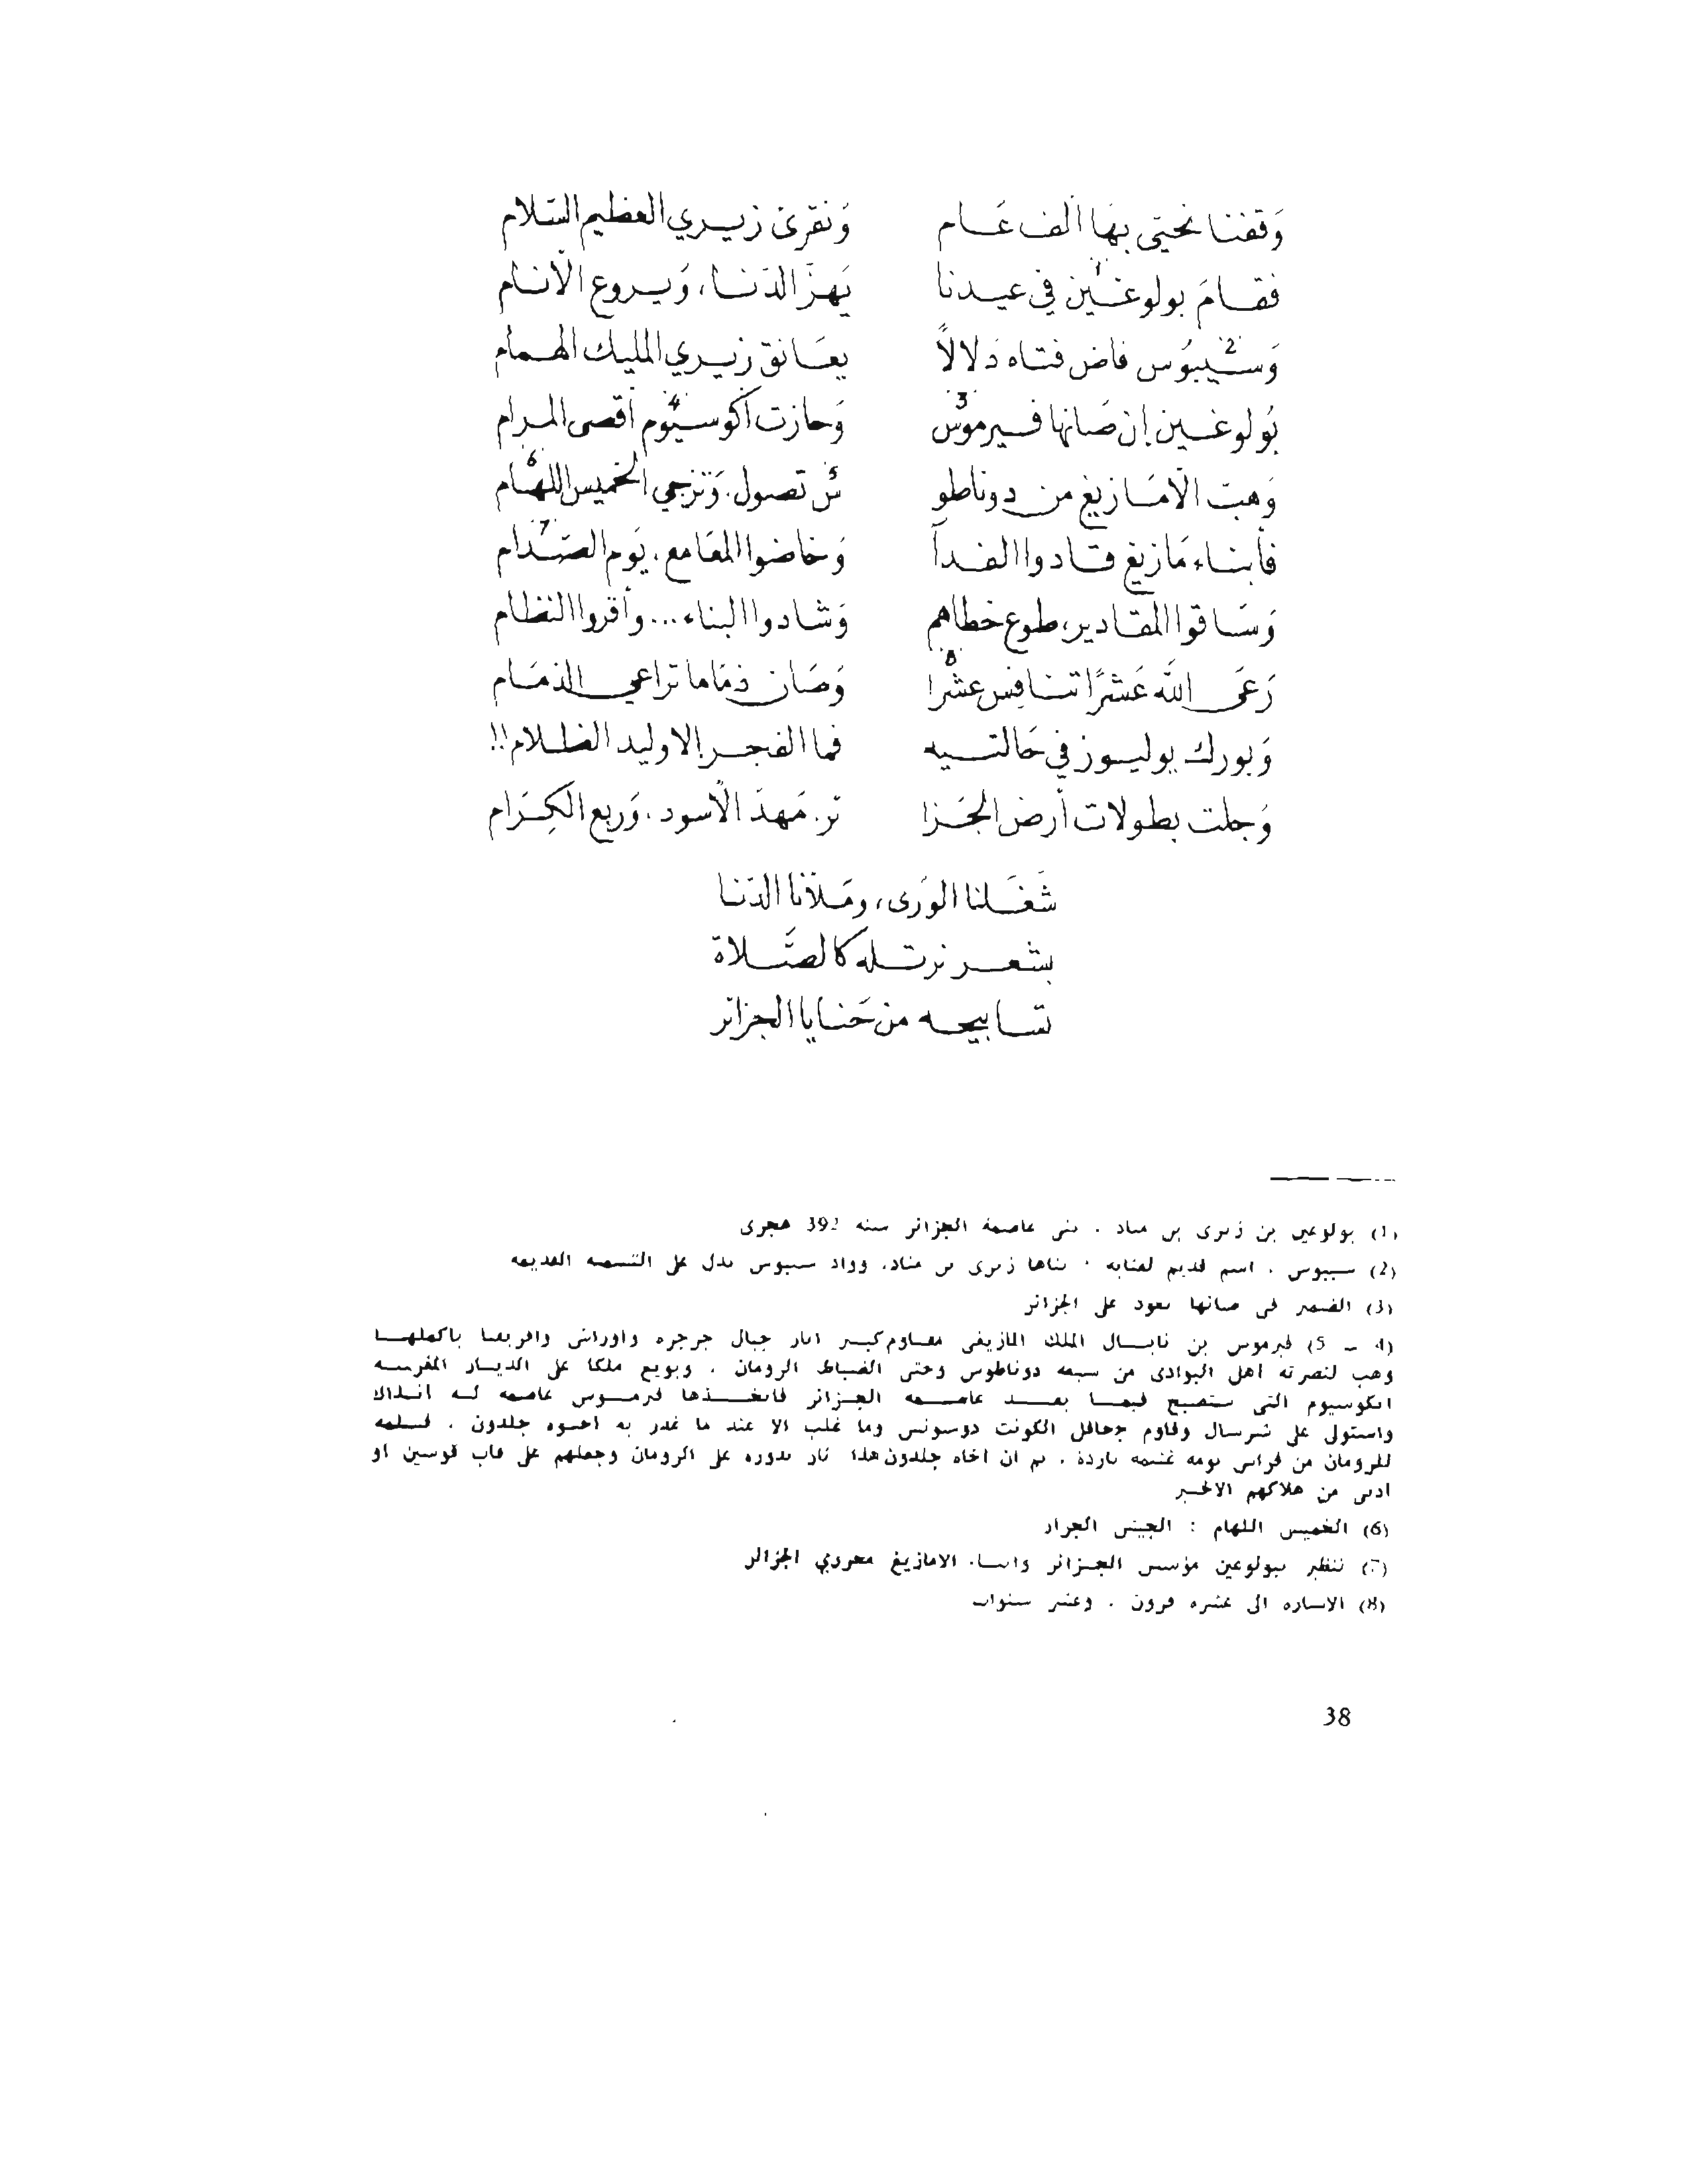 وَقفنا نحيّي بهَا ألف عَام وَنقرئ زيري العظيم السّلام
فقامَ بولوغين¹ في عيدنا يَهزّ الدّنا، وَيروع الأنام
وَسيبوُس² فاض فتاه دلالاً يعَانق زيري المليك الهمام
بُولوغين إن صَانها³ فيرموس وَحازت أكوسيوم⁴ أقصى المرام
وَهبت الأمَازيغ من دوناطو س⁵ تصول. وَتزجي الخميس اللهام⁶
فأبناء مَازيغ قادوا الفدا وَخاضوا المعَامع، يَوم الصّدام⁷
وَسَاقوا المقادير، طوع خطاهم وَشادوا البناء... وأقروا النظام
رَعَى الله عَشرًا تنافِس عشرا⁸ وَصَان ذمَاما تراعي الذمَام
وَبورك يوليوز في حَالتيه فما الفجر إلا وليد الظلام!!
وَجلت بطولات أرض الجَزا ئر. مَهدَ الأسود، وَربع الكِرَام
شَغَلنا الوَرى، ومَلأنا الدّنا
بشعر نرتله كالصَّلاة
تسابيحه من حَنايا الجزائر
(1) بولوغين بن زيري بن مناد . بنى عاصمة الجزائر سنة 392 هجرى
(2) سيبوس . اسم قديم لعنابة . بناها زيرى بن مناد، وواد سيبوس يدل على التسمية القديمة
(3) الضمير فى صانها يعود على الجزائر
(4 – 5) فيرموس بن نابال الملك المازيغى مقاوم كبير اثار جبال جرجرة واوراس وافريقيا باكملها
وهب لنصرته أهل البوادى من سبعة دوناطوس وحتى الضباط الرومان . وبويع ملكا على الديار المغربية
ايكوسيوم التى ستصبح فيما بعد عاصمة الجزائر فاتخذها فرموس عاصمة له
واستولى على شرسال وقاوم جحافل الكونت دوسونس وما غلب الا عند ما غدر به اخوه جلدون . فسلمه
للرومان من فراس نومه غنيمة باردة . ثم ان اخاه جلدون هذا ثار بدوره على الرومان وجعلهم على قاب قوسين او
ادنى من هلاكهم الاخير
(6) الخميس اللهام : الجيش الجرار
(7) تنظير ببولوغين مؤسس الجزائر وابناء الامازيغ محررى الجزائر
(8) الاشارة الى عشرة قرون . وعشر سنوات
38